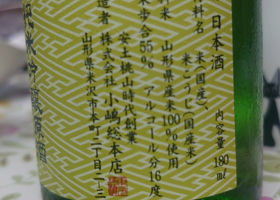 日本酒
原材料名 米(国産)、米こうじ(国産米)
内容量 180ml
山形県産米100%使用
精米歩合55% アルコール分16度
安土桃山時代創業
製造者 株式会社 小嶋総本店
山形県米沢市本町二丁目二-三